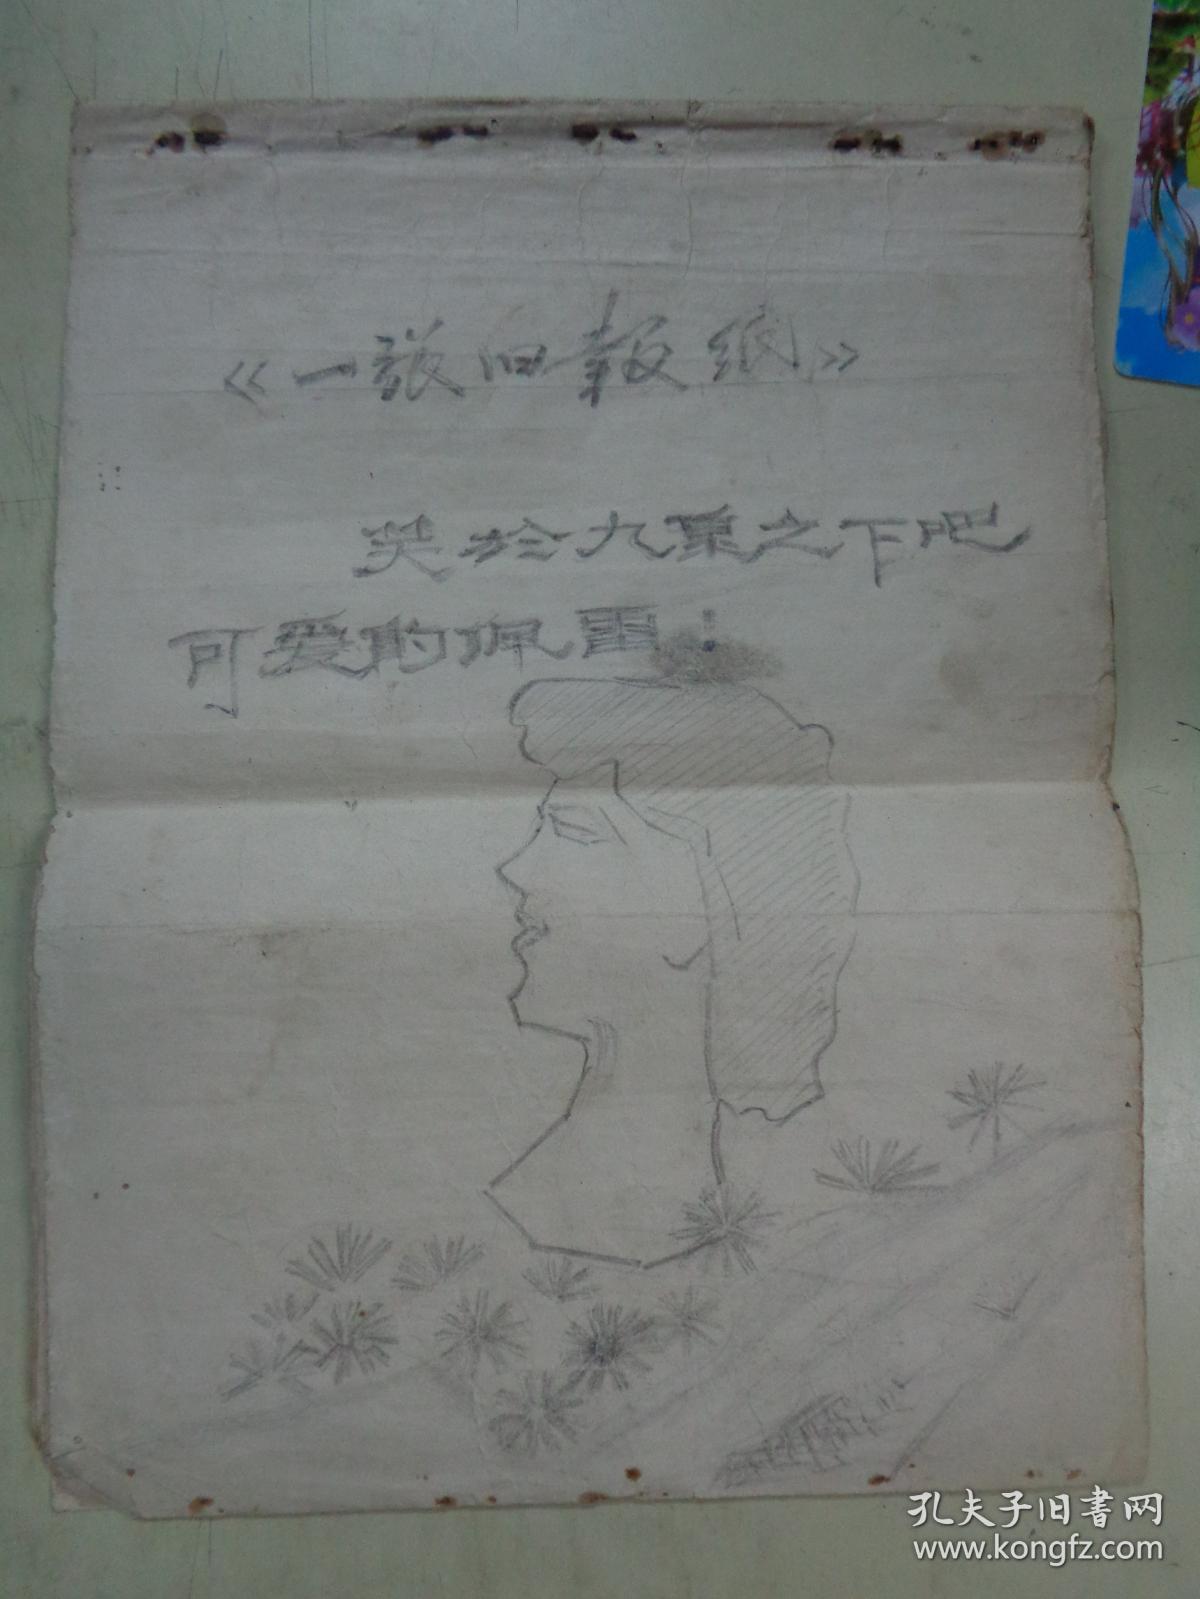 《一張旧報紙》
笑於九泉之下吧
可爱的佩雷！
孔夫子旧书网
www.kongfz.com